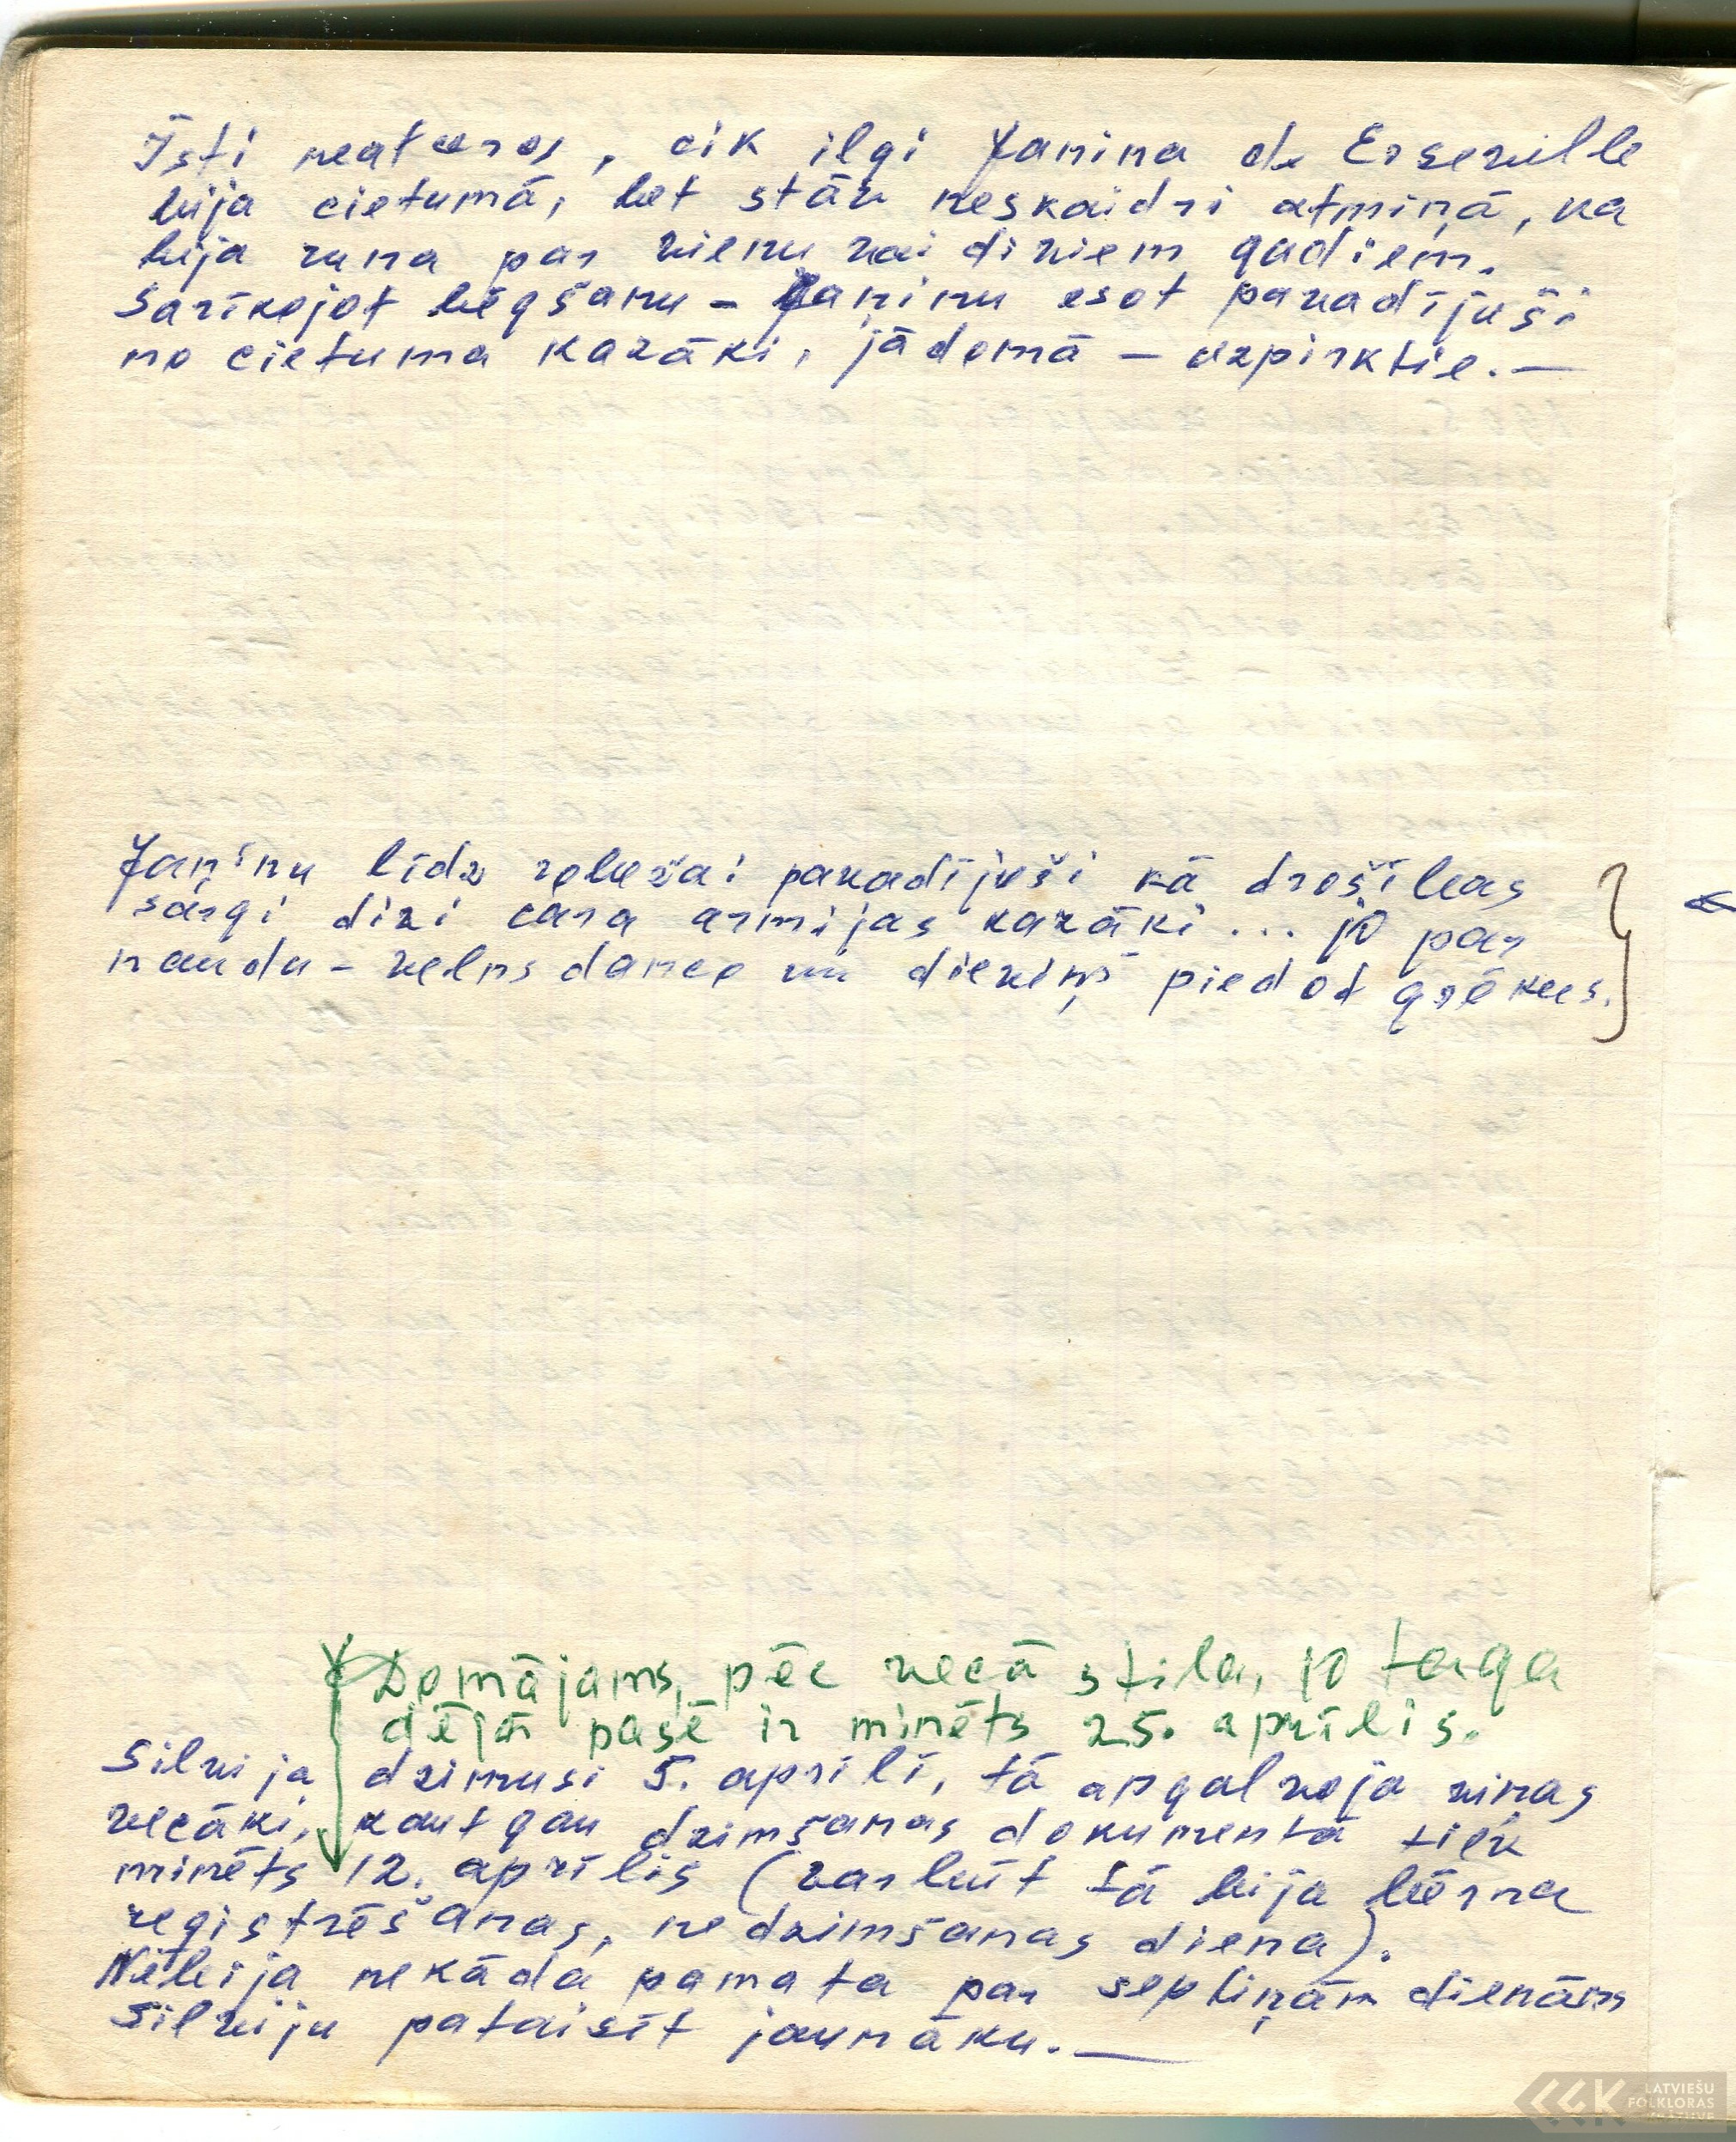 Īsti neatceros, cik ilgi Janina de Erseville
bija cietumā, bet stāv neskaidri atmiņā, ka
bija runa par vienu vai diviem gadiem.
Sarīkojot bēgšanu – Janinu esot pavadījuši
no cietuma kazāki, jādomā – uzpirktie. —
Janinu līdz robežai pavadījuši kā drošības
sargi divi cara armijas kazāki ... jo par
naudu – velns danco un dieviņš piedot grēkus.
Domājams, pēc vecā stila, jo taga
dējā pasē ir minēts 25. aprīlis.
Silvija dzimusi 5. aprīlī, tā apgalvoja viņas
vecāki, kautgan dzimšanas dokumentā tiek
minēts 12. aprīlis (varbūt tā bija bērna
reģistrēšanas, ne dzimšanas diena).
Nebija nekāda pamata par septiņām dienām
Silviju pataisīt jaunāku. —
LATVIEŠU
FOLKLORAS
KRĀTUVE